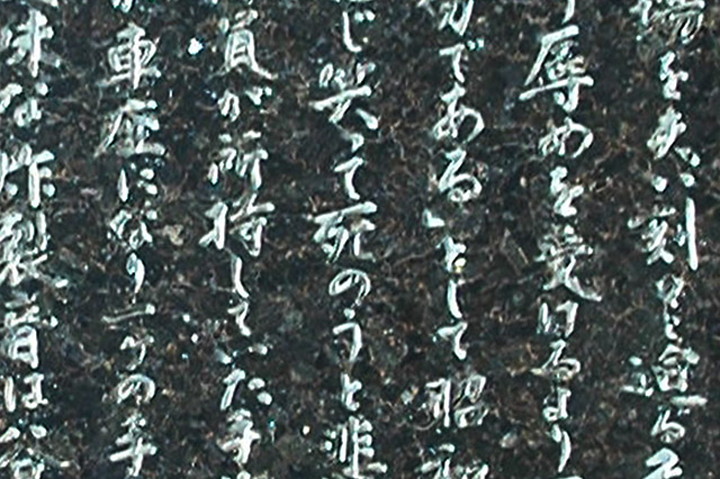 場を失い刻々迫る
辱めを受けるより
である」として昭和
じ笑って死のうと悲
員が所持していた手
車座になり一ケの手
味な炸裂音は谷